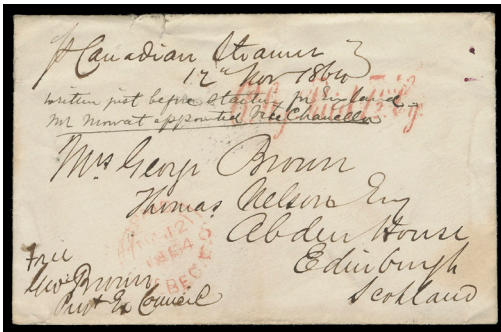 p Canadian Steamer
12th Nov 1864
Written just before starting for England -
Mr Mowat appointed Vice Chancellor
Mrs George Brown
Thomas Nelson Esq
Abden House
Edinburgh
Scotland
12
1864
QUEBEC
Free
Geo Brown
Presdt Ex Council